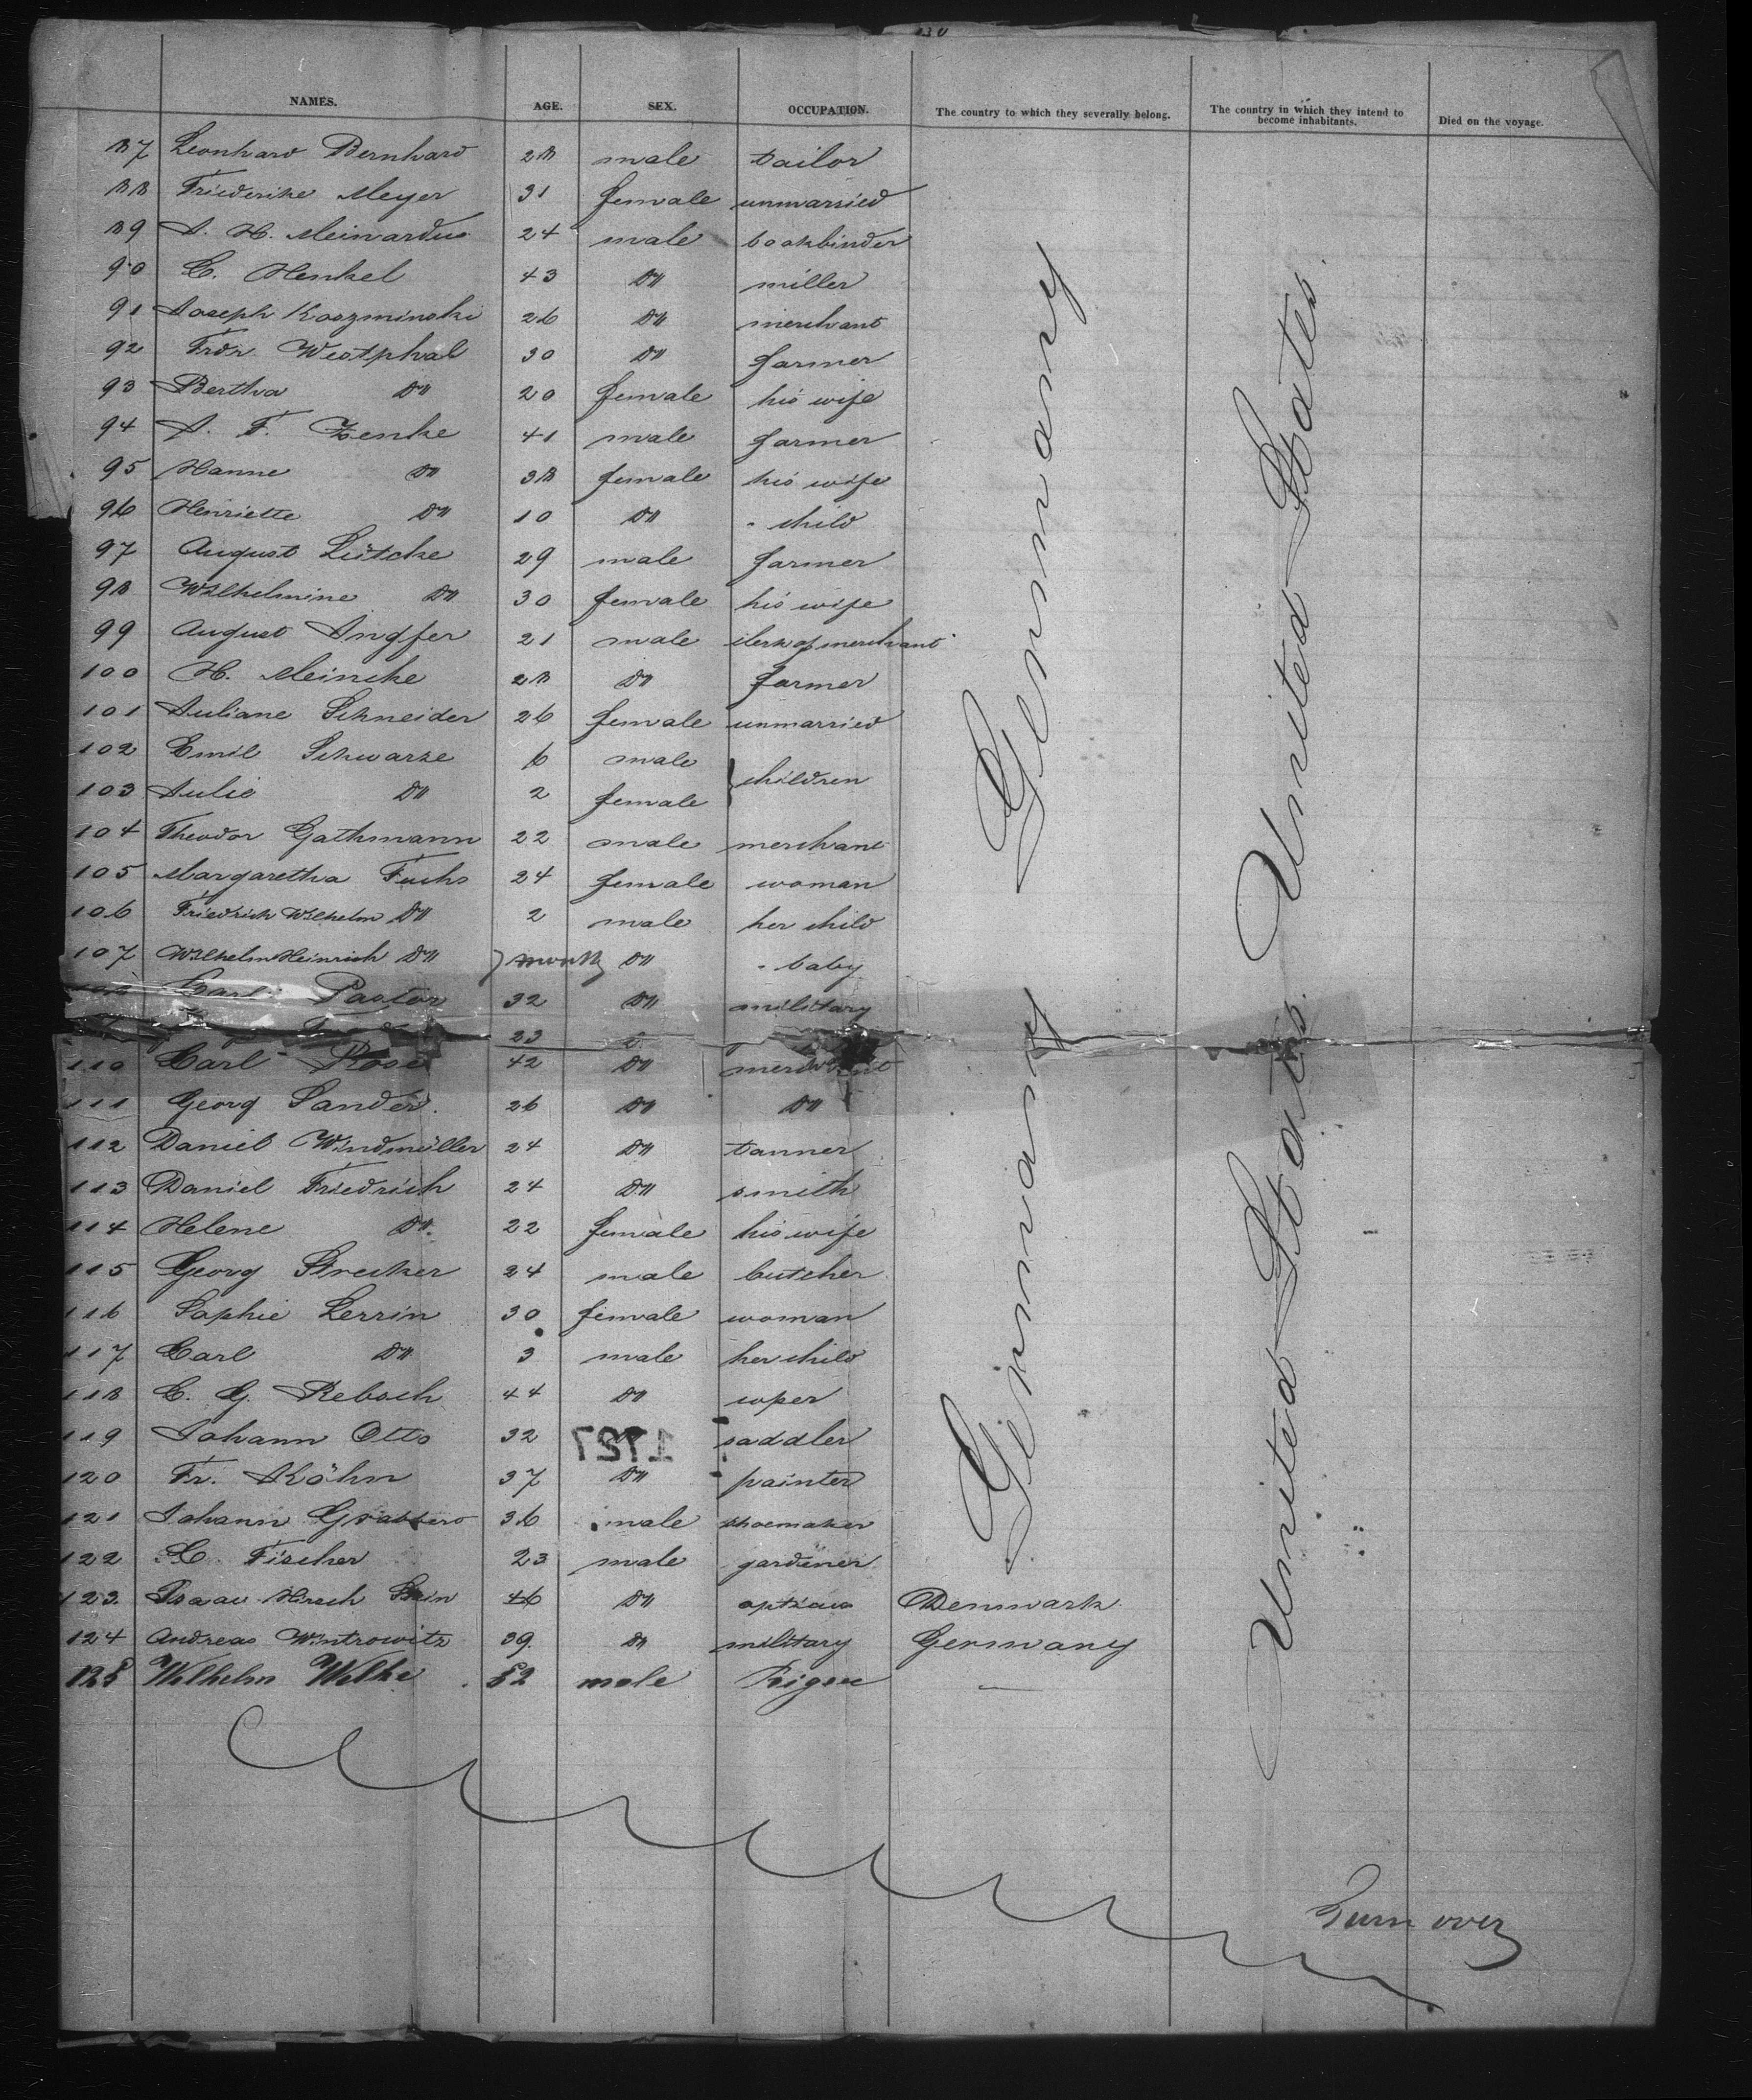 130
NAMES. AGE. SEX. OCCUPATION. The country to which they severally belong. The country in which they intend to become inhabitants. Died on the voyage.
87 Leonhard Bernhard 28 male tailor
88 Friederike Meyer 31 female unmarried
89 J. H. Meinardus 24 male bookbinder
90 C. Henkel 43 Do miller
91 Joseph Koszminski 26 Do merchant
92 Fedr Westphal 30 Do farmer
93 Bertha Do 20 female his wife
94 J. F. Zenke 41 male farmer
95 Hanne Do 38 female his wife
96 Henriette Do 10 Do " child
97 August Lütcke 29 male farmer
98 Wilhelmine Do 30 female his wife
99 August 21 male clerk of merchant
100 H. Meincke 28 Do farmer
101 Juliane Schneider 26 female unmarried
102 Emil Schwarze 6 male
children
103 Julie Do 2 female
104 Theodor Gathmann 22 male merchant
105 Margaretha Fuchs 24 female woman
106 Friedrich Wilhelm Do 2 male her child
107 Wilhelm Heinrich Do 7 month Do " baby
Carl Pastor 32 Do military
23
110 Carl Rose 42 Do merchant
111 Georg Sander 26 Do Do
112 Daniel Windmüller 24 Do tanner
113 Daniel Friedrich 24 Do smith
114 Helene Do 22 female his wife
115 Georg Strecker 24 male butcher
116 Sophie Lerrin 30 female woman
117 Carl Do 3 male her child
118 C. G. Rebsch 44 Do coper
119 Johann Otto 32 saddler
1727
120 Fr. Köhn 37 Do painter
121 Johann 36 male shoemaker
122 C. Fischer 23 male gardener
123 Isaac Hirsch Stein 46 Do Denmark
124 Andreas Wintrowitz 39 Do military Germany
125 Wilhelm Wilke 52 male —
Germany
United States
Germany
United States
Turn over